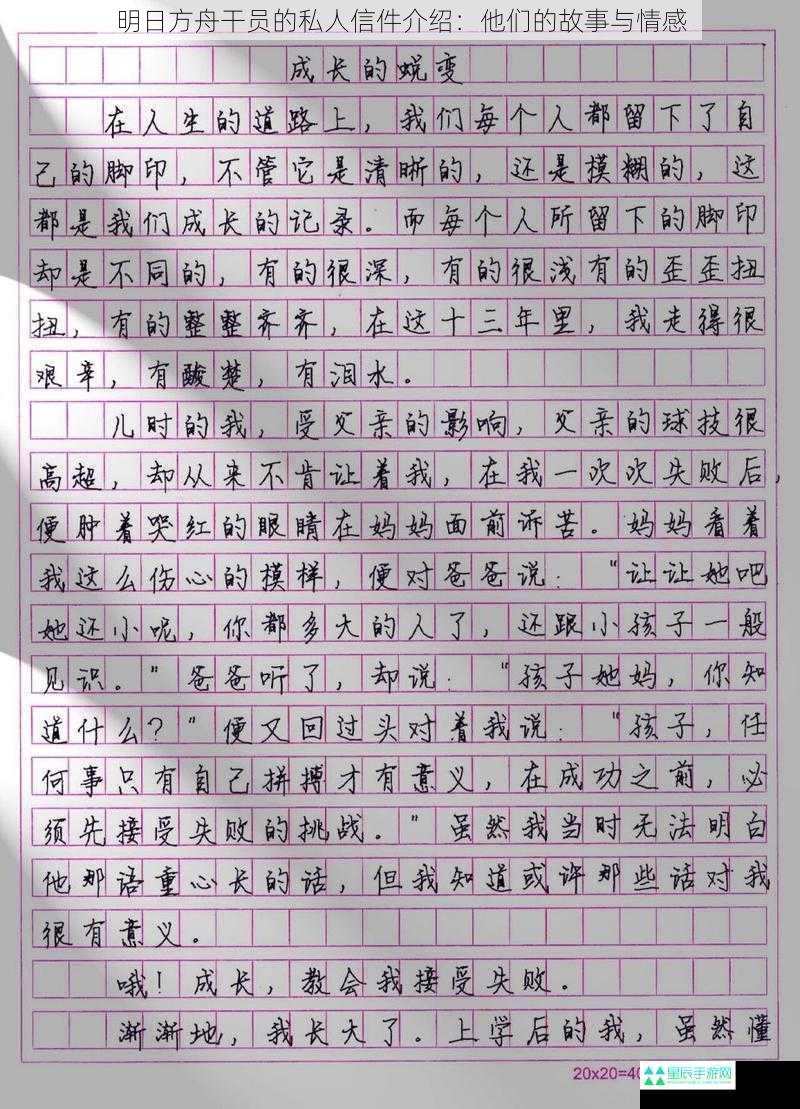 明日方舟干员的私人信件介绍：他们的故事与情感
成长的蜕变
在人生的道路上，我们每个人都留下了自
己的脚印，不管它是清晰的，还是模糊的，这
都是我们成长的记录。而每个人所留下的脚印
却是不同的，有的很深，有的很浅有的歪歪扭
扭，有的整整齐齐，在这十三年里，我走得很
艰辛，有酸楚，有泪水。
儿时的我，受父亲的影响，父亲的球技很
高超，却从来不肯让着我，在我一次次失败后，
便肿着哭红的眼睛在妈妈面前诉苦。妈妈看着
我这么伤心的模样，便对爸爸说：“让让她吧
她还小呢，你都多大的人了，还跟小孩子一般
见识。”爸爸听了，却说：“孩子她妈，你知
道什么？”便又回过头对着我说：“孩子，任
何事只有自己拼搏才有意义，在成功之前，必
须先接受失败的挑战。”虽然我当时无法明白
他那语重心长的话，但我知道或许那些话对我
很有意义。
哦！成长，教会我接受失败。
渐渐地，我长大了。上学后的我，虽然懂
20x20=40
星辰手游网